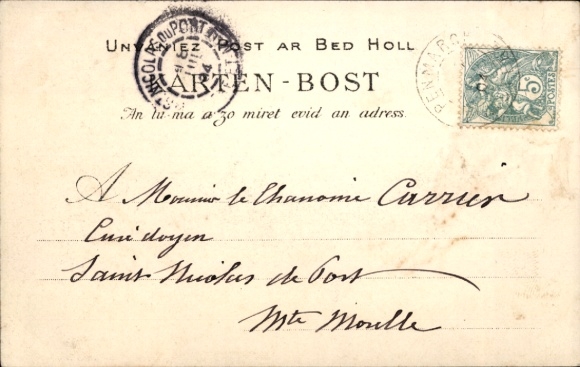 Unvaniez Post ar Bed Holl
KARTEN-BOST
An tu-ma a zo miret evid an adress.
NICOLAS DU PORT
PENMARCH
5
POSTES
A Monsieur le Chanoine Carrier
Curé doyen
Saint Nicolas de Port
Mte Moselle